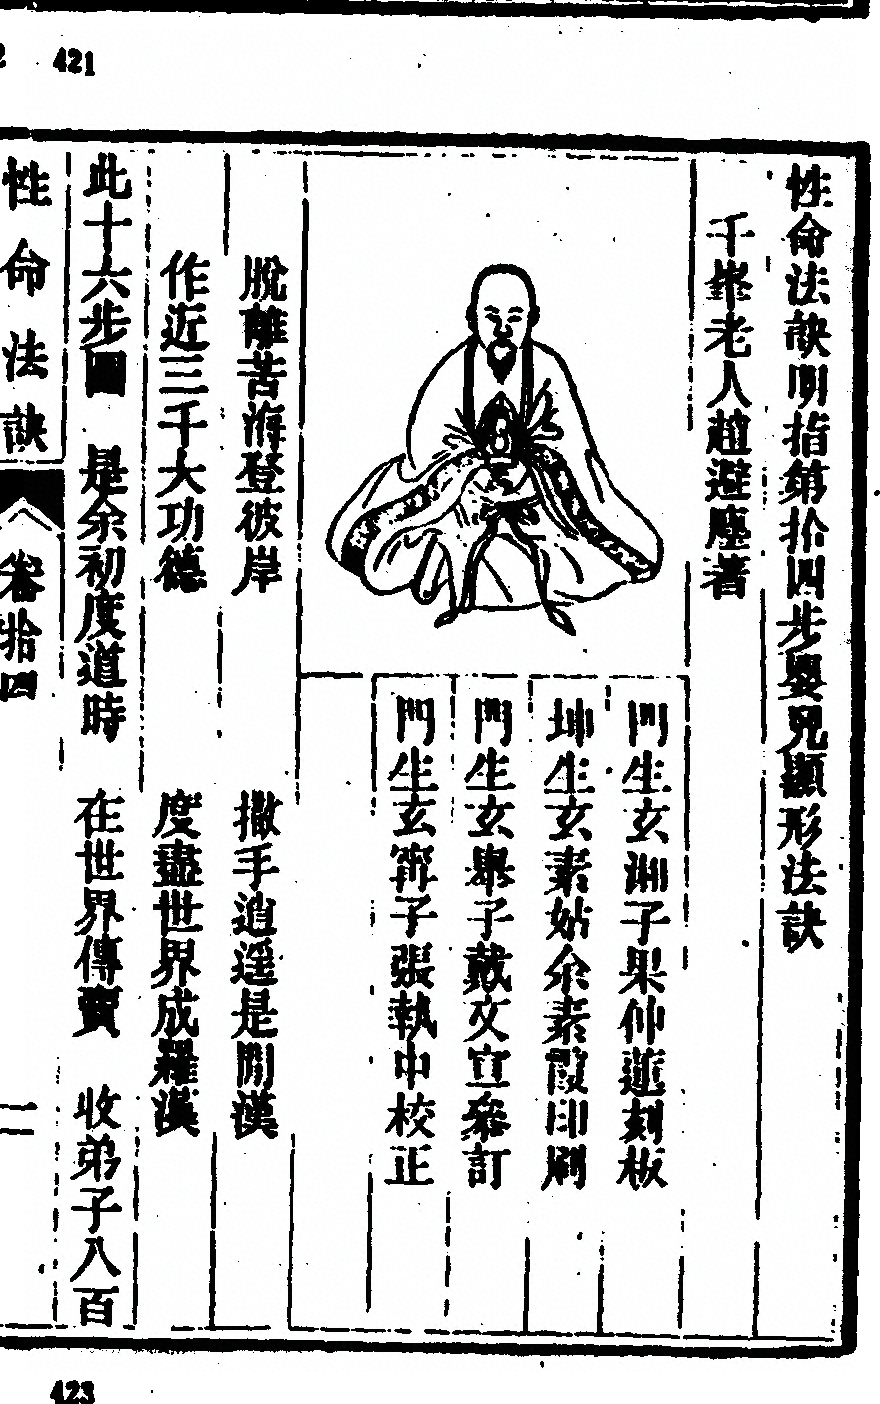 421
性命法訣明指第拾四步嬰兒顯形法訣
千峯老人趙避塵著
門生玄湘子果仲蓮刻板
坤生玄素姑余素霞印刷
門生玄舉子戴文宣參訂
門生玄霄子張執中校正
脫離苦海登彼岸 撒手逍遥是閒漢
作近三千大功德 度盡世界成羅漢
此十六步圖 是余初度道時 在世界傳寶 收弟子八百
性命法訣 卷拾四 二
423